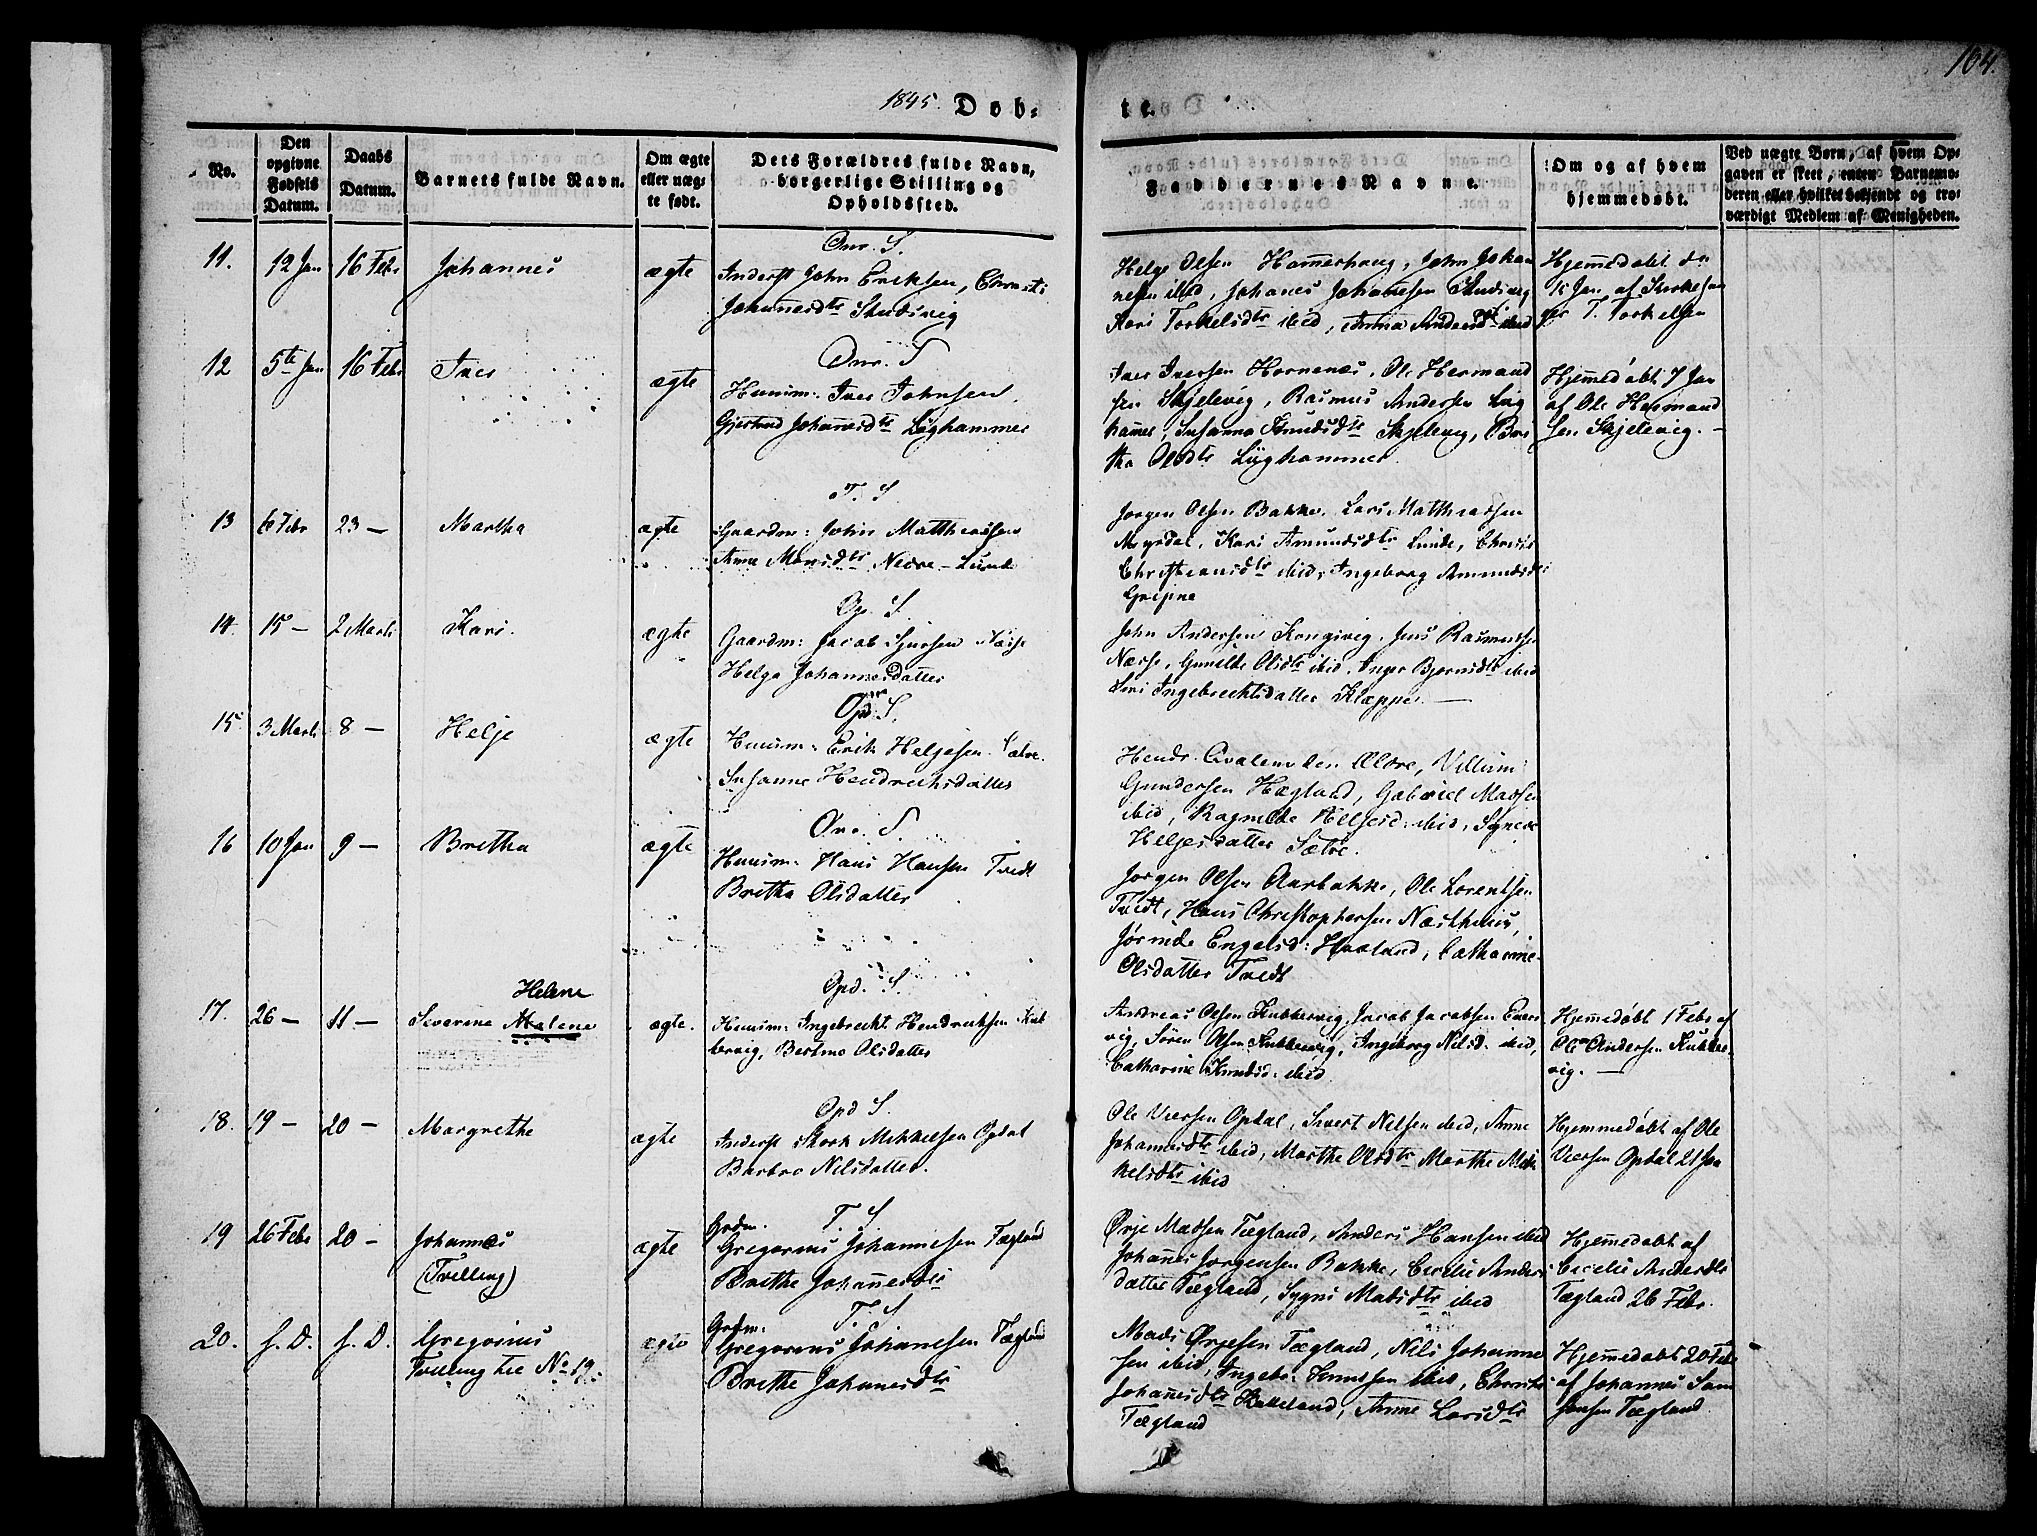 104.
1845. Døb-
te.
No.
Den opgivne Fødsels Datum.
Daabs Datum.
Barnets fulde Navn.
Om ægte eller uægte født.
Dets Forældres fulde Navn, borgerlige Stilling og Opholdssted.
Faddernes Navne.
Om og af hvem hjemmedøbt.
Ved uægte Børn, af hvem Opgaven er skeet, enten Barnemoderen eller hvilket bekjendt og troværdigt Medlem af Menigheden.
11. 12 Jan 16 Febr Johannes ægte
Inderst John Eriksen,
Johannesdtr Studsvig
Helge Olsen Hammerhaug, John Johan
nesen ibid, Johanes Johannesen Studsvig
Kari Torkelsdtr ibid, Anna Andersdtr ibid
Hjemmedøbt
T. Torkelsen
12 5te Jan 16 Febr Iver ægte
Huusm: Iver Johnsen
Gjertrud Johannesdtr Lyghammer
Iver Iversen Hornenes, Ole Hermand
sen Skjelevig, Rasmus Andersen Lyg
hamer, Susanna Knudsdtr Skjelevig, Bri
tha Olsdtr Lyghammer
Hjemmedøbt 7 Jan
af Ole Hermand
sen Skjelevig. —
13 6 Febr 23 — Martha ægte
T. S.
Gaardm: John Matthiassen
Anne Monsdtr Nedre-Lunde
Jørgen Olsen Bakke, Lars Matthiassen
Myrdal, Kari Amundsdtr Lunde,
Christiansdtr ibid, Ingeborg Amundsd
Gripne
14. 15 — 2 Marts Kari. ægte
Gaardm: Jacob Sjursen Næsse
Helga Johannesdatter
John Andersen Kongsvig, Jens Rasmussen
Næsse, Gunilde Olsdtr ibid, Inger Bjørnsdtr ibid
Siri Ingebrechtsdatter Klæppe. —
15 3 Marts 8 — Helje ægte
Huusm: Erik Helgesen Sætre
Susanne Hendrechsdatter
Gundersen Hægland, Gabriel Madsen
ibid, Ragnilde Helgesd: ibid, Signe
Helgesdatter Sætre.
16 10 Jan 9 — Britha ægte
Huusm: Hans Hansen Tvedt
Britha Olsdatter
Jørgen Olsen Aarbakke, Ole Lorentsen
Tvedt, Hans Christophersen Næsthuus,
Jørinde Engelsd: Haaland, Catharine
Olsdatter Tvedt
17. 26 — 11 — Severine Malene Helene ægte.
Opd. S.
Huusm: Ingebrecht Hendriksen Kub
bervig, Bertine Olsdatter
Andreas Olsen Kubbervig, Jacob Jacobsen Ener
vig, Søren Olsen Kubbervig, Ingeborg Nilsd. ibid,
Catharine Knudsd: ibid
Hjemmedøbt 1 Febr af
Ole Andersen Kubber
vig. —
18. 19 — 20 — Margrethe ægte
Opd S.
Inderst Stork Mikkelsen Opdal
Barbro Nilsdatter.
Ole Viersen Opdal, Sivert Nilsen ibid, Anne
Johannesdtr ibid, Marthe Olsdtr Marthe Mik
kelsdtr ibid
Hjemmedøbt af Ole
Viersen Opdal 21 Jan
19 26 Febr 20 — Johannes (Tvilling) ægte
T. S.
Grdm.
Gregorius Johannesen Tægland
Brithe Johannesdtr
Ørje Madsen Tægland, Anders Hansen ibid
Johannes Jørgensen Bakke, Cecelie Anders
datter Tægland, Sygni Madsdtr ibid
Hjemmedøbt af
Cecelie Andersdtr
Tægland 26 Febr.
20. f. D. f. D. Gregorius Tvilling til No 19. ægte
T. S
Grdm:
Gregorius Johanesen Tægland
Brithe Johanesdtr
Mads Ørjesen Tægland, Nils Johanne
sen ibid, Ingebr. Knutsen ibid,
Johanesdtr Bakkeland, Anne Larsdtr
Tægland
Hjemmedøbt 20 Febr
af Johannes Sam
sonsen Tægland